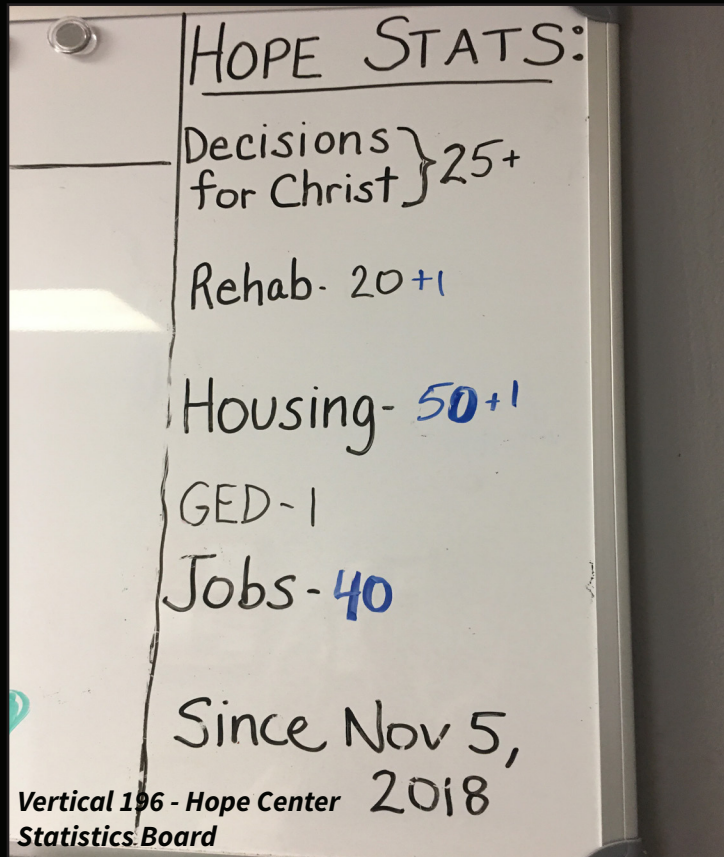 HOPE STATS:
Decisions
for Christ } 25+
Rehab- 20 +1
Housing- 50+1
GED-1
Jobs-40
Since Nov 5,
2018
Vertical 196 - Hope Center
Statistics Board